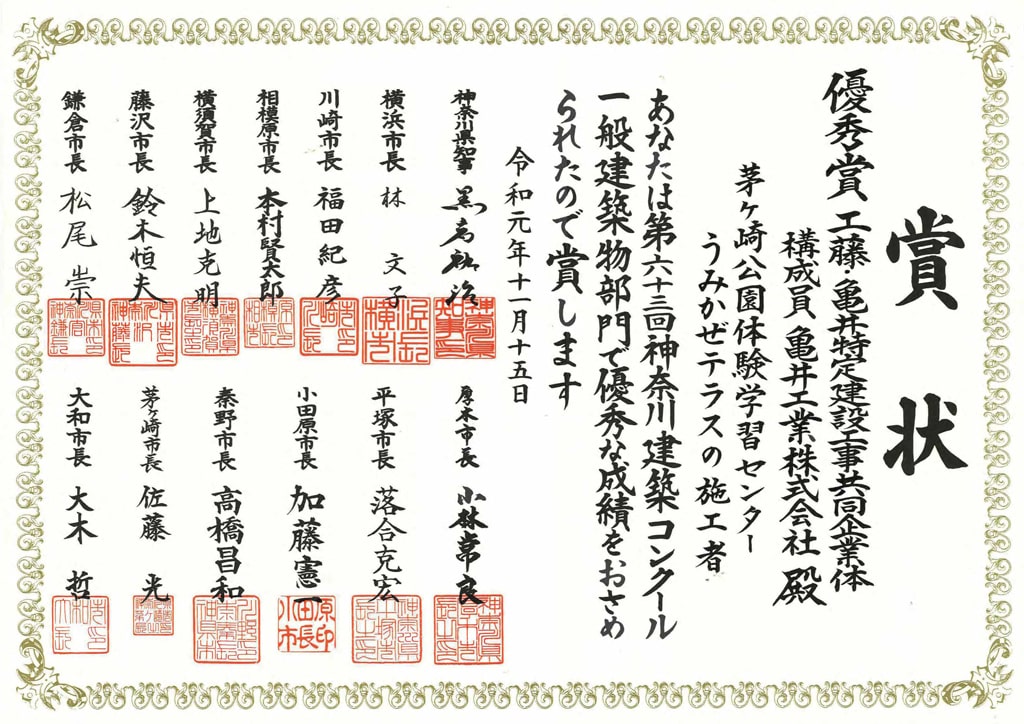 賞状
優秀賞 工藤・亀井特定建設工事共同企業体
構成員 亀井工業株式会社 殿
茅ヶ崎公園体験学習センター
うみかぜテラスの施工者
あなたは第六十三回神奈川建築コンクール
一般建築物部門で優秀な成績をおさめ
られたので賞します
令和元年十一月十五日
神奈川県知事 黒岩祐治
横浜市長 林 文子
川崎市長 福田紀彦
相模原市長 本村賢太郎
横須賀市長 上地克明
藤沢市長 鈴木恒夫
鎌倉市長 松尾 崇
厚木市長 小林常良
平塚市長 落合克宏
小田原市長 加藤憲一
秦野市長 高橋昌和
茅ヶ崎市長 佐藤 光
大和市長 大木 哲